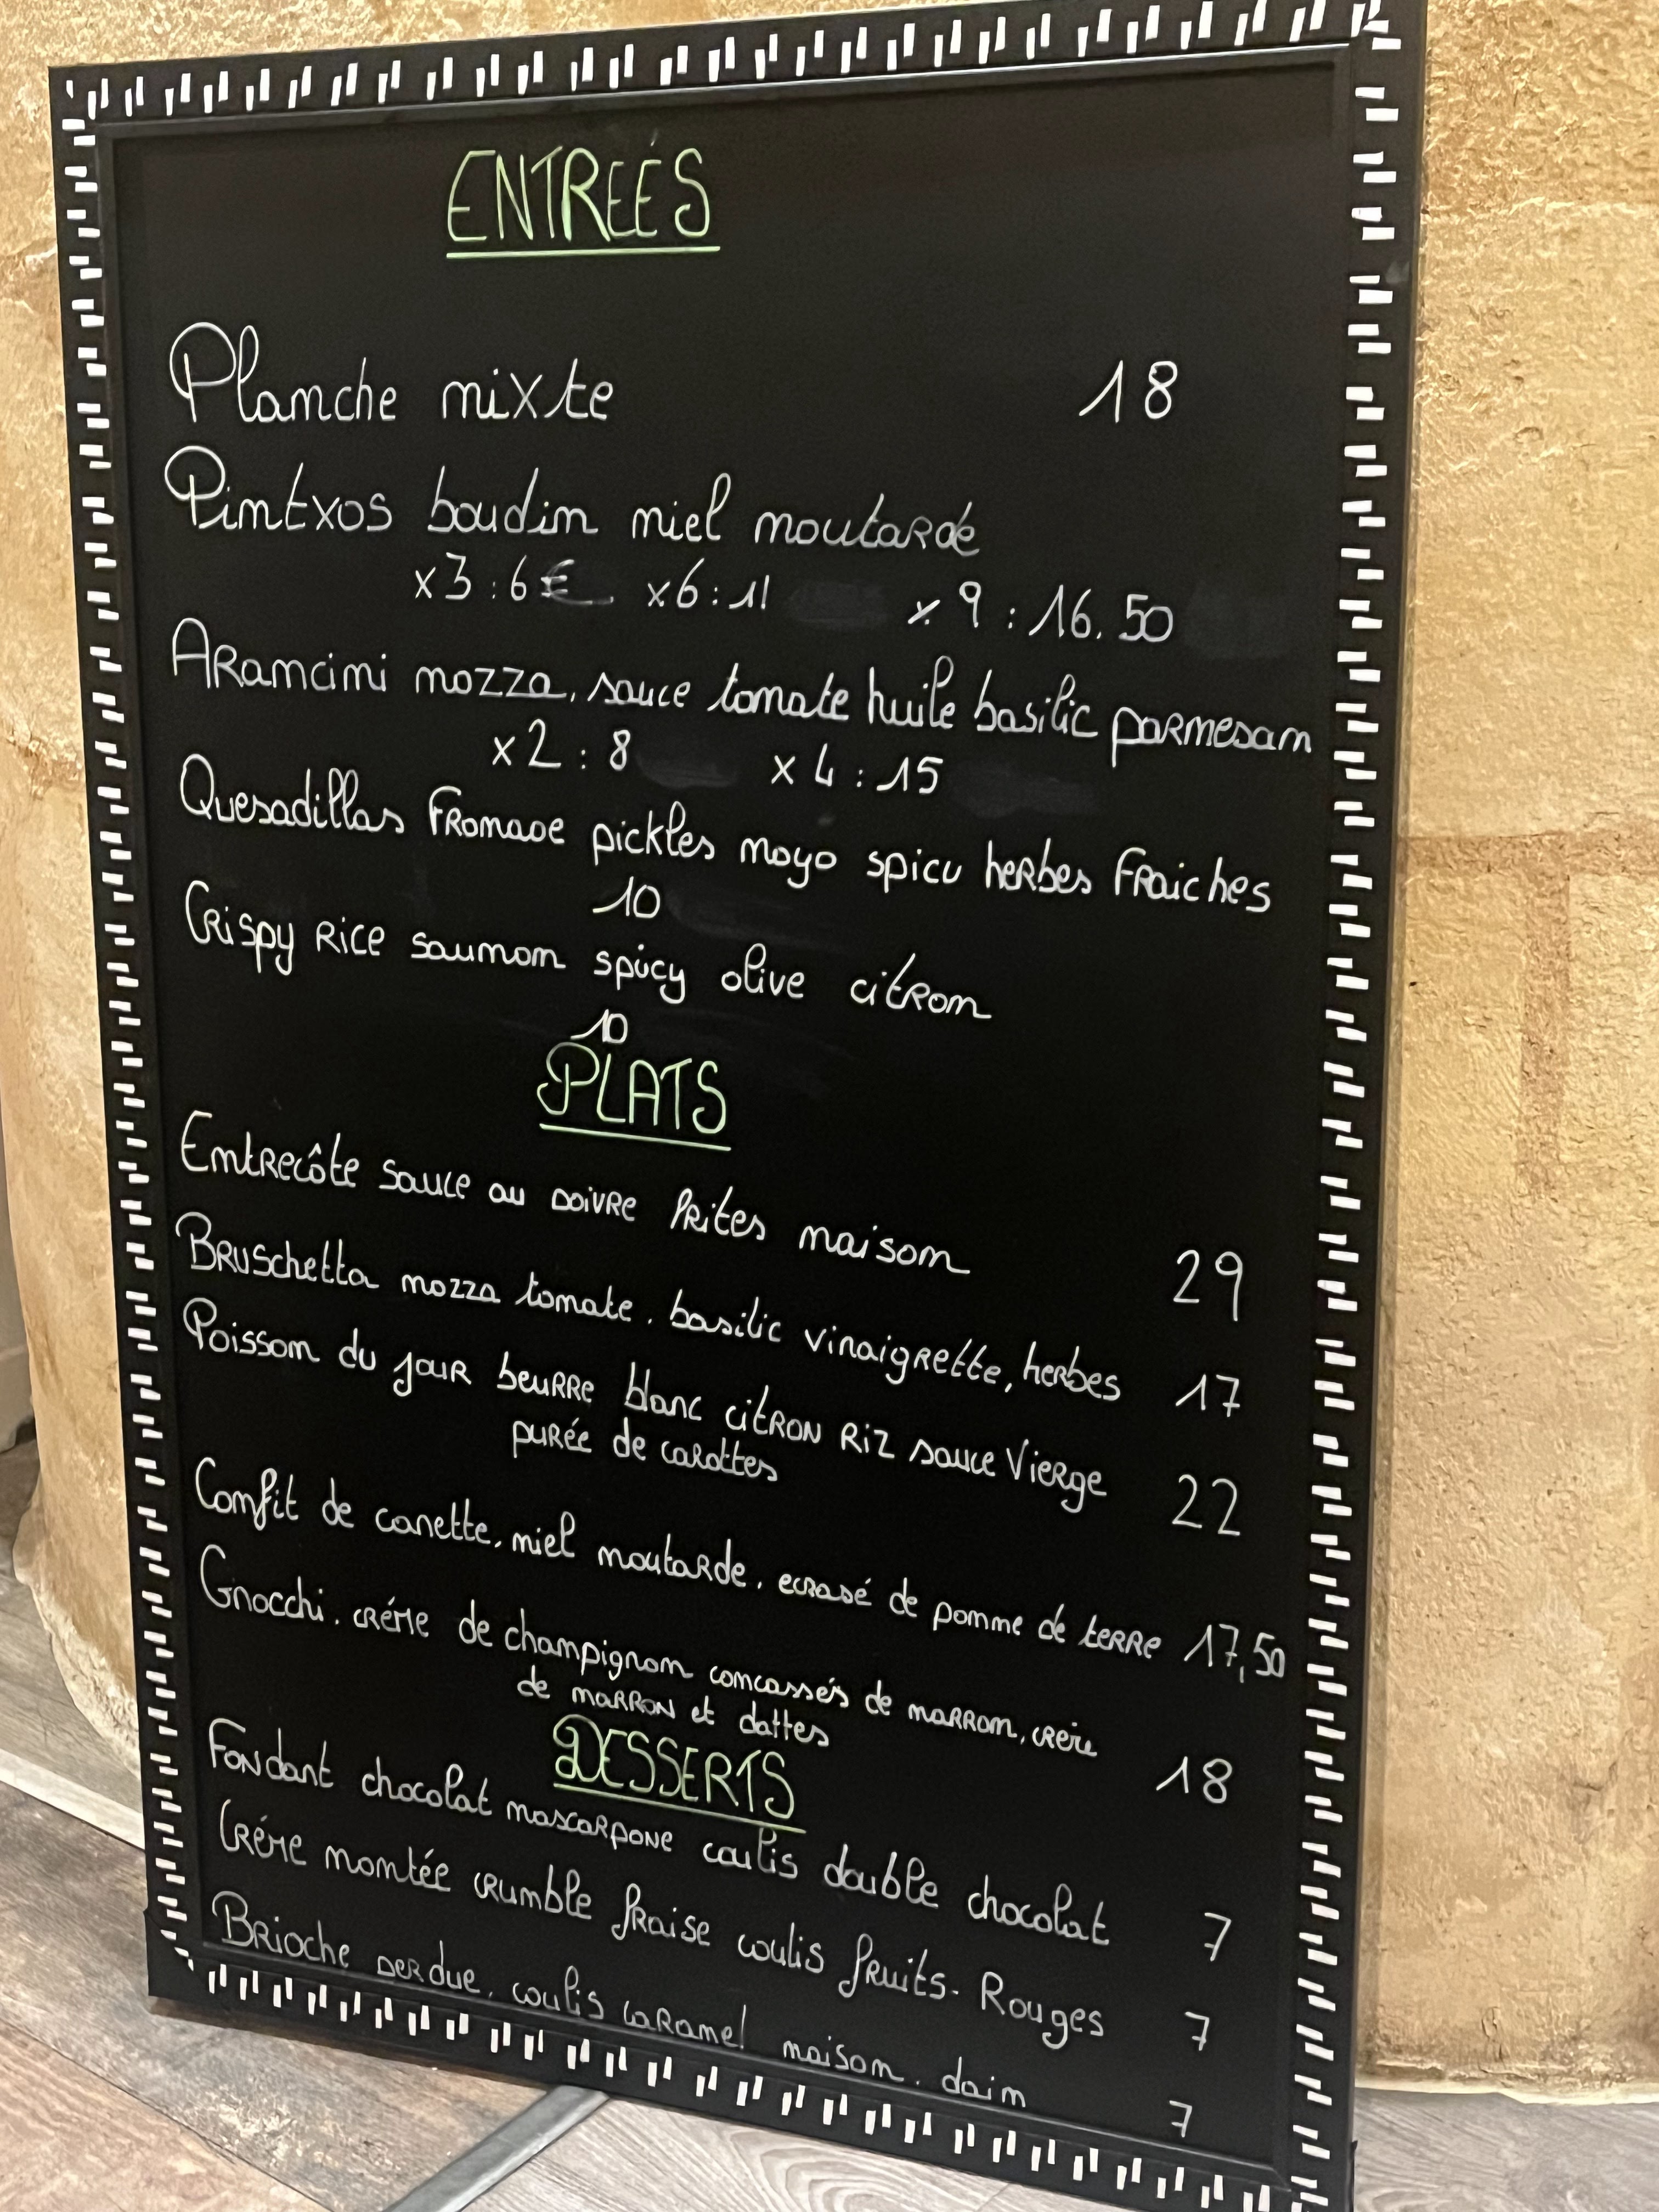 ENTREÉS
Planche mixte 18
Pintxos boudin miel moutarde
x3 : 6€. x6 : 11 x 9 : 16.50
Arancini mozza, sauce tomate huile basilic parmesan
x2 : 8 x4 : 15
Quesadillas Fromage pickles mayo spicy herbes Fraiches
10
Crispy Rice saumon spicy olive citron
10
PLATS
Entrecôte sauce au poivre frites maison 29
Bruschetta mozza tomate, basilic vinaigrette, herbes 17
Poisson du jour beurre blanc citron riz sauce Vierge 22
purée de carottes
Confit de canette, miel moutarde, ecrasé de pomme de terre 17,50
Gnocchi, créme de champignon concassés de marron, créme 18
de marron et dattes
DESSERTS
Fondant chocolat mascarpone coulis double chocolat 7
Créme montée crumble fraise coulis fruits-Rouges 7
Brioche perdue, coulis caramel maison, daim 7